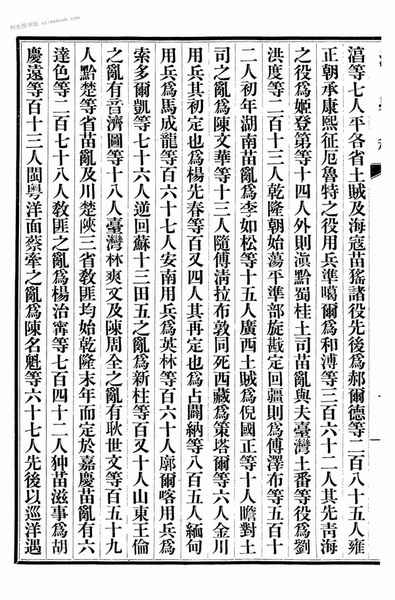 滈等七人平各省土賊及海寇苗猺諸役先後爲郝爾德等二百八十五人雍
正朝承康熙征厄魯特之役用兵準噶爾爲和溥等三百六十二人其先靑海
之役爲姬登第等十四人外則滇黔蜀桂土司苗亂與夫臺灣土番等役爲劉
洪度等二百十三人乾隆朝始蕩平準部旋戡定回疆則爲傅澤布等五百十
二人初年湖南苗亂爲李如松等十五人廣西土賊爲倪國正等十人瞻對土
司之亂爲陳文華等十三人隨傅淸拉布敦同死西藏爲策塔爾等六人金川
用兵其初定也爲楊先春等百又四人其再定也爲占闢納等八百五人緬甸
用兵爲馬成龍等百六十七人安南用兵爲英林等百六十人廓爾喀用兵爲
索多爾凱等七十六人逆回蘇十三田五之亂爲新柱等百又十人山東王倫
之亂有音濟圖等十八人臺灣林爽文及陳周全之亂有耿世文等百五十九
人黔楚等省苗亂及川楚陝三省敎匪均始乾隆末年而定於嘉慶苗亂有六
達色等二百七十八人敎匪之亂爲楊治甯等七百四十二人狆苗滋事爲胡
慶遠等百十三人閩粤洋面蔡牽之亂爲陳名魁等六十七人先後以巡洋遇